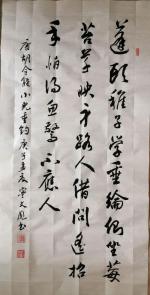 蓬頭稚子學垂綸側坐莓
苔草映身路人借問遙招
手怕得魚驚不應人
唐胡令能小兒垂釣庚子孟夏寧文鳳書